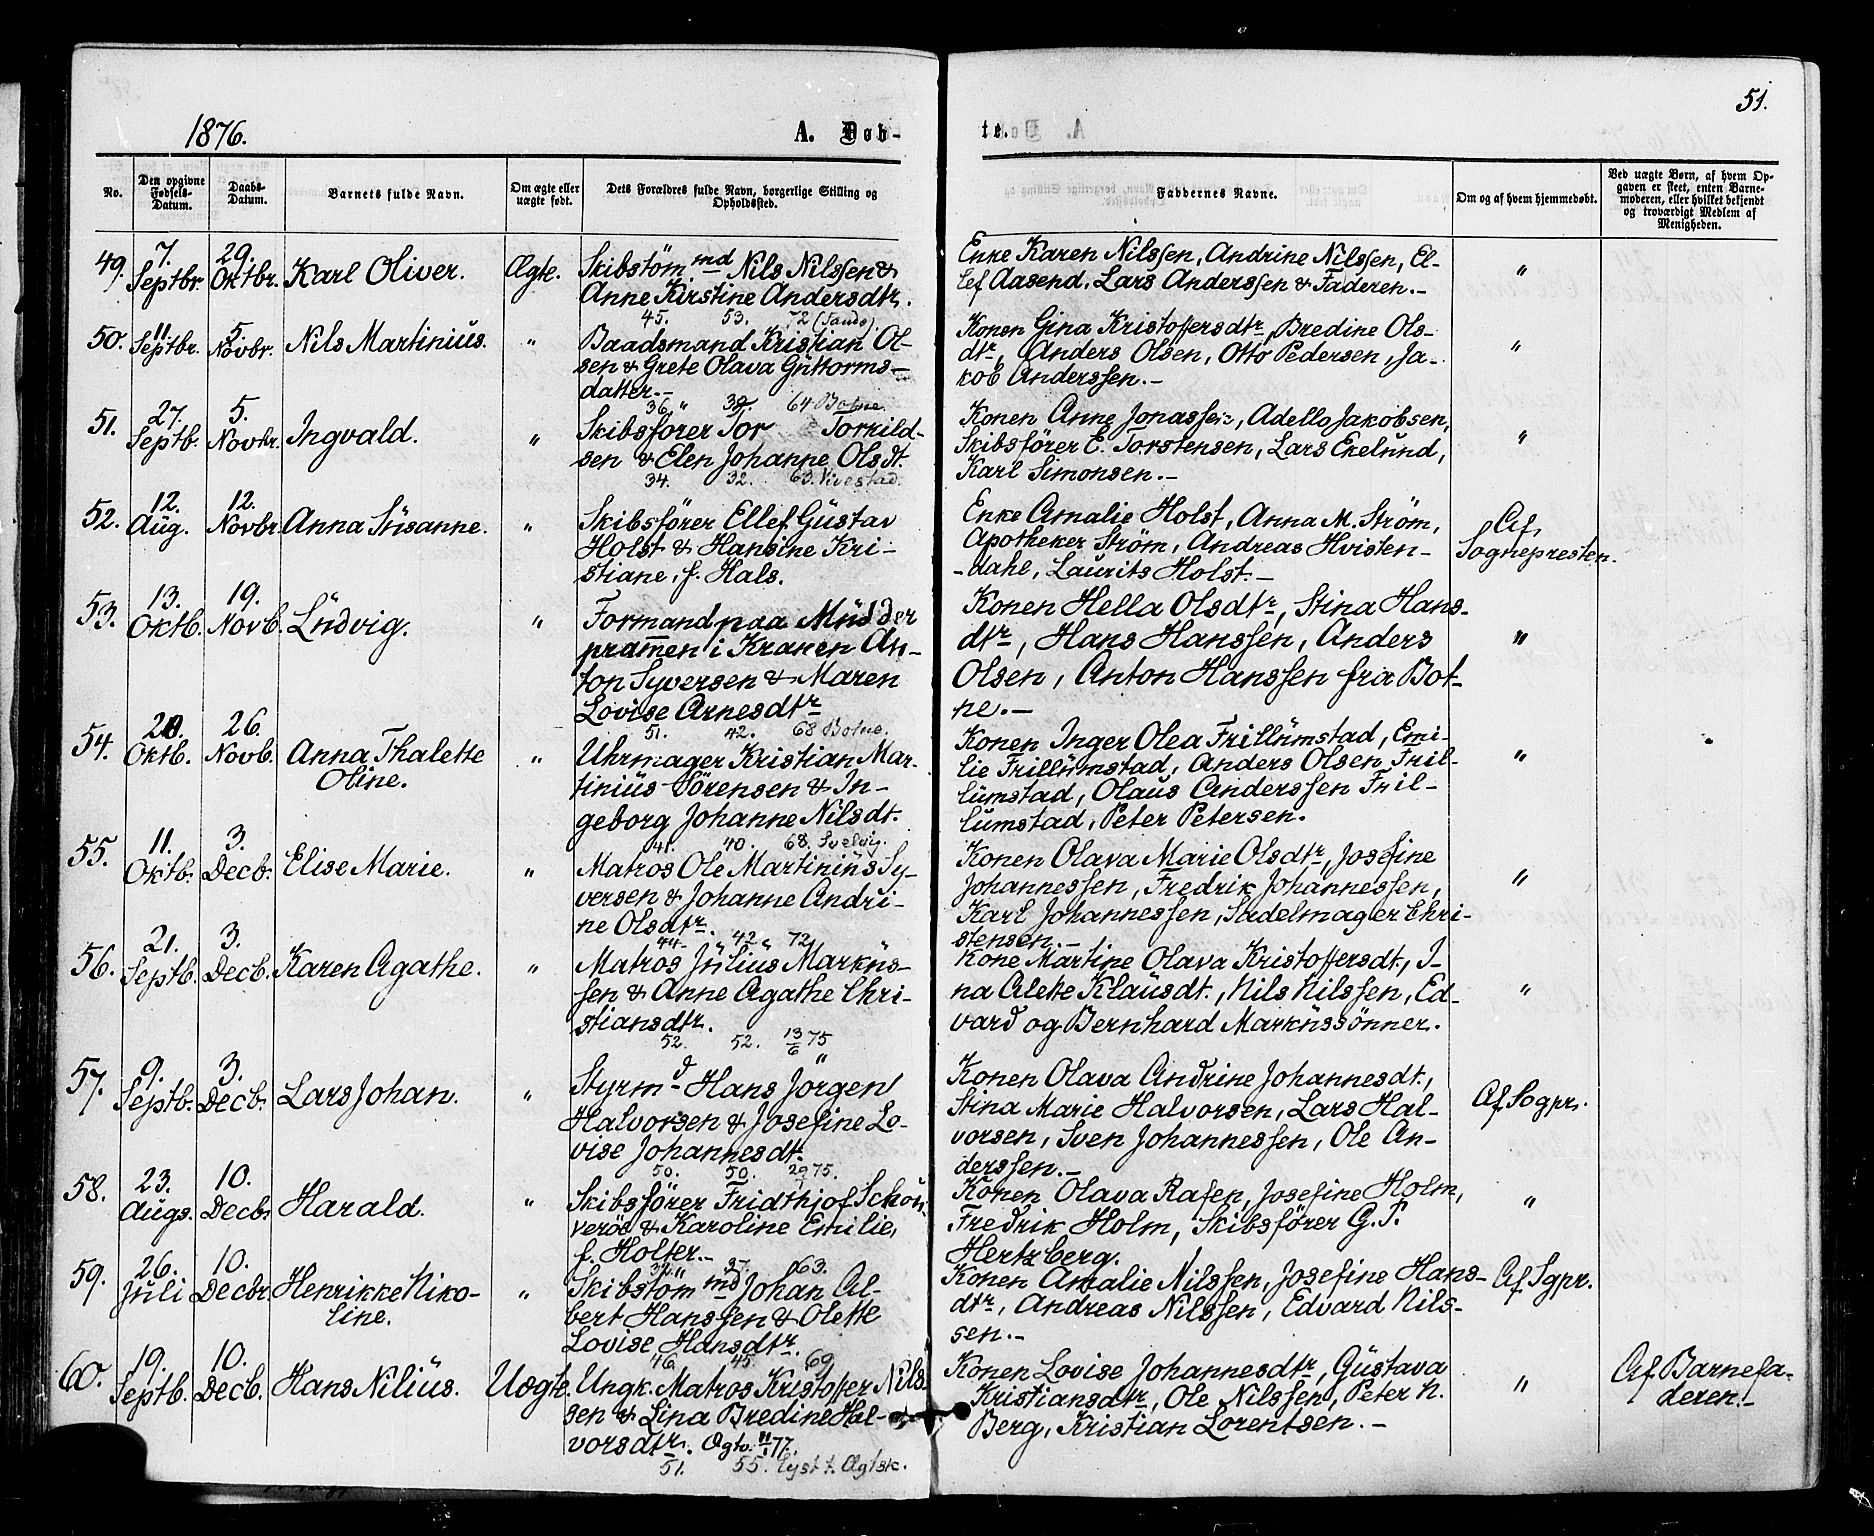 51.
1876.
A. Døb-
te.
No.
Den opgivne Fødsels-Datum.
Daabs-Datum.
Barnets fulde Navn.
Om ægte eller uægte født.
Dets Forældres fulde Navn, borgerlige Stilling og Opholdssted.
Faddernes Navne.
Om og af hvem hjemmedøbt.
Ved uægte Børn, af hvem Opgaven er skeet, enten Barnemoderen, eller hvilket bekjendt og troværdigt Medlem af Menigheden.
49. 7. Septbr. 29. Oktbr. Karl Oliver. Ægte.
Skibstömmd Nils Nilssen &
Anne Kirstine Andersdtr.
45. 53. 72 (Sande).
Enke Karen Nilssen, Andrine Nilssen, El-
lef Aasend, Lars Anderssen & Faderen.-
"
50. 11 Septbr. 5. Novbr. Nils Martinius. "
Baadsmand Kristian Ol-
sen & Grete Olava Guttorms-
datter.-
36. " 39. 64 Botne.
Konen Gina Kristoffersdtr, Bredine Ols-
dtr, Anders Olsen, Otto Pedersen, Ja-
kob Anderssen.-
"
51. 27. Septb. 5. Novbr. Ingvald. "
Skibsförer Tor Torkild-
sen & Elen Johanne Olsdt.
34. 32. 63. Vivestad.
Konen Anne Jonassen, Adello Jakobsen,
Skibsförer E. Torstensen, Lars Ekelund,
Karl Simonsen.-
"
52. 12. Aug. 12. Novbr. Anna Susanne. "
Skibsförer Ellef Gustav
Holst & Hansine Kri-
stiane, f. Hals.
Enke Amalie Holst, Anna M. Ström,
Apotheker Ström, Andreas Hvisten-
-dahl, Laurits Holst.-
Af
Sognepresten.
53. 13. Oktb. 19. Novb. Ludvig. "
Formand paa Mudder
prammen i Kranen An-
ton Syversen & Maren
Lovise Arnesdtr
51. 42. 68 Botne.
Konen Hella Olsdtr, Stina Hans-
dtr, Hans Hanssen, Anders
Olsen, Anton Hanssen fra Bot-
ne.-
"
54. Oktb. 26. Novb. Anna Thalette
Oline. "
Uhrmager Kristian Mar-
tinius Sörensen & In-
geborg Johanne Nilsdt.
41. 40. 68. Svelvig.
Konen Inger Olea Frillumstad, Emi-
lie Frillumstad, Anders Olsen Fril-
lumstad, Olaus Anderssen Fril-
lumstad, Peter Petersen.
"
55. 11. Oktb. 3. Decb. Elise Marie. "
Matros Ole Martinius Sy-
versen & Johanne Andri-
ne Olsdtr.
44. 42. 72
Konen Olava Marie Olsdtr, Josefine
Johannessen, Fredrik Johannessen,
Karl Johannessen, Sadelmager Chri-
stensen.-
"
56. 21. Septb. 3. Decb. Karen Agathe. "
Matros Julius Markus-
sen & Anne Agathe Chri-
stiansdtr.
52. 52. 13/6 75
Kone Martine Olava Kristoffersdt, I-
na Alette Klausdt., Nils Nilssen, Ed-
vard og Bernhard Markussönner.
"
57. 9. Septb. 3. Decb. Lars Johan. "
Styrmd Hans Jörgen
Halvorsen & Josefine Lo-
vise Johannesdt.
50. 50. 75.
Konen Olava Andrine Johannesdt.,
Stina Marie Halvorsen, Lars Hal-
vorsen, Sven Johannessen, Ole An-
derssen.-
Af Sogpr.
58. 23. Augs. 10. Decbr Harald. "
Skibsförer Fridthjof Schön-
veröe & Karoline Emilie,
f. Holter.-
27. 63.
Konen Olava Rafen, Josefine Holm,
Fredrik Holm, Skibsförer G. P.
Hertzberg.
"
59. 26. Juli 10. Decbr Henrikke Niko-
line. "
Skibstömmd Johan Al-
bert Hanssen & Olette
Lovise Hansdtr.
46. 45. 69
Konen Amalie Nilssen, Josefine Hans-
dtr, Andreas Nilssen, Edvard Nils-
sen.-
Af Sgpr.
60. 19. Septb. 10. Decb. Hans Nilius. Uægte.
Ungk. Matros Kristoffer Nils-
sen & Lina Bredine Hal-
vorsdtr. Ægtv. 11/1 77.
51. 55. Lyst t. Ægtsk.
Konen Lovise Johannesdtr, Gustava
Kristiansdtr, Ole Nilssen, Peter N.
Berg, Kristian Lorentsen.-
"
Af Barnefa-
deren.-